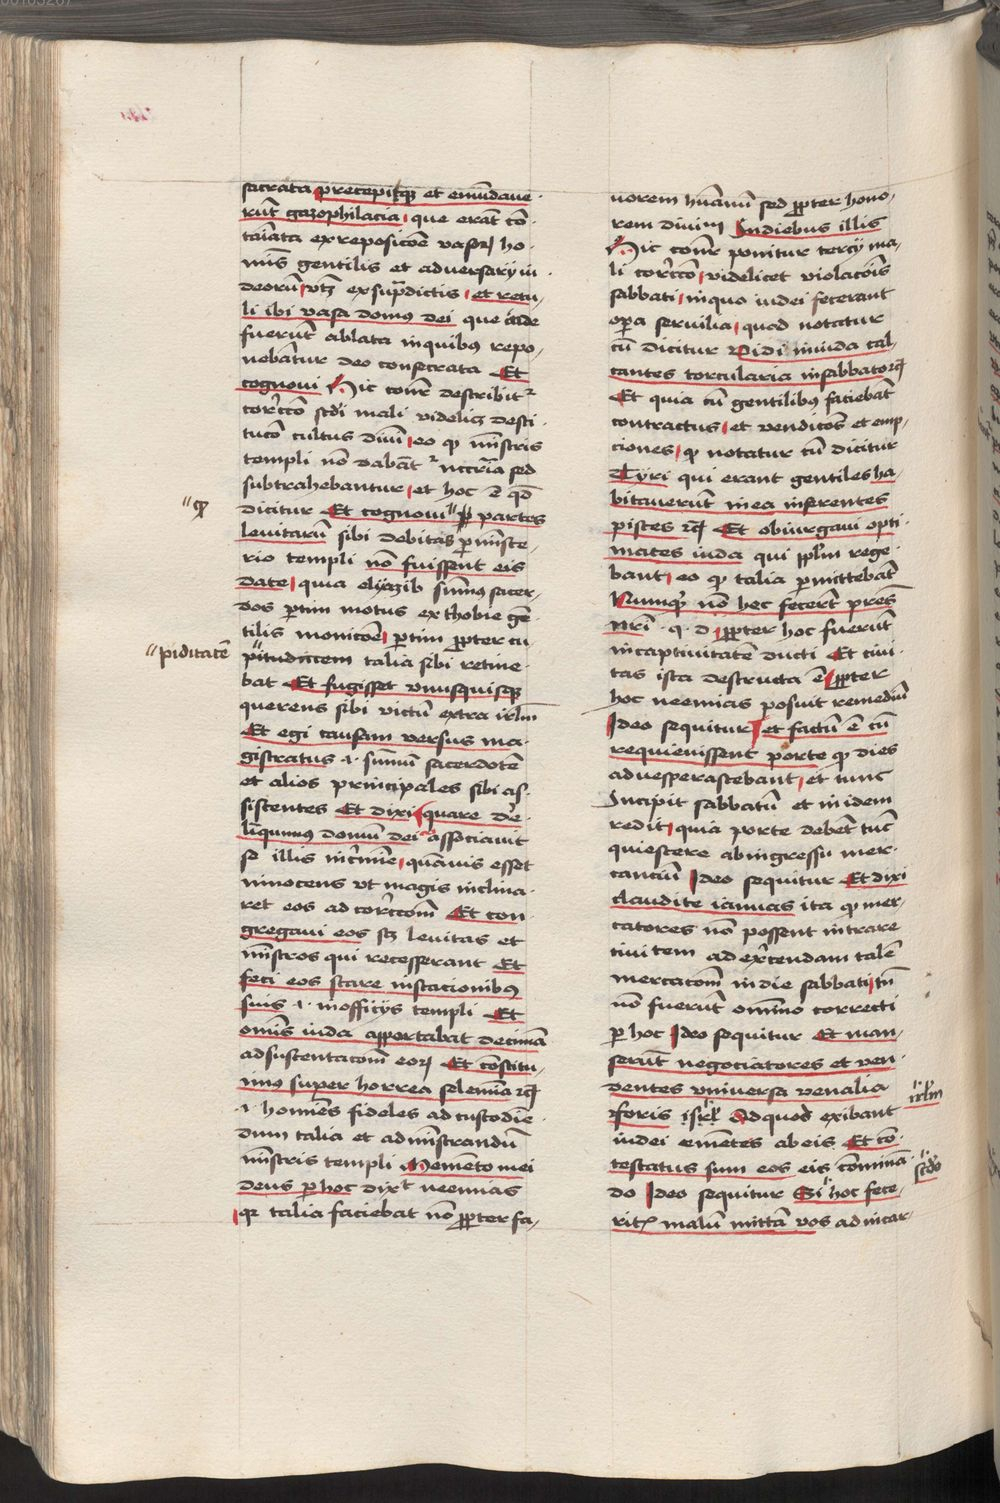 sacrata precepitq et emūdave
rūt gazophilacia que erāt cō
taīata ex reposicōe vasorꝫ ho
mīs gentilis et adversarij iu
deorū vtꝫ ex supradictis et retu
li ibi vasa domus dei que inde
fuerūt ablata in quibus repo
nebātur deo consecrata Et
cognovi Hic cōnr describitr
corrcō scdi mali videlicꝫ desti
tucō cultus divī eo qꝫ mīstris
templi nō dabāt nccria sed
subtrahebantur et hoc ē qd
dicitur Et cognovi partes
levitarū sibi debitas p mīste
rio templi nō fuissent eis
date quia elyazib sūmus sacer
dos ptim motus ex thobie gē
tilis monicōe ptim ppter cu
pitudinem talia sibi retine
bat Et fugisset vnusquisqꝫ
querens sibi victū extra irlm̄
Et egi causam versus ma
gistratus .i. sūmum sacerdotē
et alios principales sibi as
sistentes Et dixi quare de
liqmus domū dei associavit
se illis in crimīe quāvis esset
innocens vt magis inclina
ret eos ad corrcom̄ Et con
gregavi eos scꝫ levitas et
mīstros qui recesserant Et
feci eos stare in stacionibus
suis .i. in officijs templi Et
omīs iuda apportabat decimā
ad sustentacom̄ eorꝫ Et cōstitu
imus super horrea selemiā
.i. homīes fideles ad custodie
dum talia et ad mīstrandū
mīstris templi Memēto mei
deus p hoc dixt neemias
qꝛ talia faciebat nō ppter fa
qꝫ
piditatē
vorem hūanū sed ppter hono
rem divinū In diebus illis
Hic cōnr ponitur tercij ma
li corrcō videlicet violacōis
sabbati in quo iudei fecerant
opa servilia quod notatur
cū dicitur Vidi in iuda cal
cantes torcularia in sabbato
Et quia cū gentilibus faciebāt
contractus et vendicōs et emp
ciones qꝫ notatur cū dicitur
Tyri qui erant gentiles ha
bitaverūt in ea inferentes
pisces Et obiurgavi opti
mates iuda qui pplm̄ rege
bant eo qꝫ talia pmittebāt
Nunqꝫ nō hec fecerūt pres
nri .q.d. ppter hoc fuerūt
in captivitatē ducti Et civi
tas ista destructa ē ppter
hoc neemias posuit remediū
Ideo sequitur et factū ē cū
requievissent porte qꝫ dies
advesperascebant et tunc
Incipit sabbatū et in idem
redit quia porte debēt tūc
quiescere ab ingressu mer
canciū Ideo sequitur Et dixi
claudite ianuas ita qꝫ mer
catores nō possent intrare
civitem ad exrcendam talē
mercacom̄ in die sabbati tn̄
nō fuerūt omnīo correcti
p hoc Ideo sequitur Et man
serūt negociatores et ven
dentes vniversa venalia
foris isrl Ad quod exibant
iudei emētes ab eis Et cō
testatus sum eos eis cōminā
do Ideo sequitur Si hoc fece
ritꝭ malū mittā vos ad incar
irlm
scdo